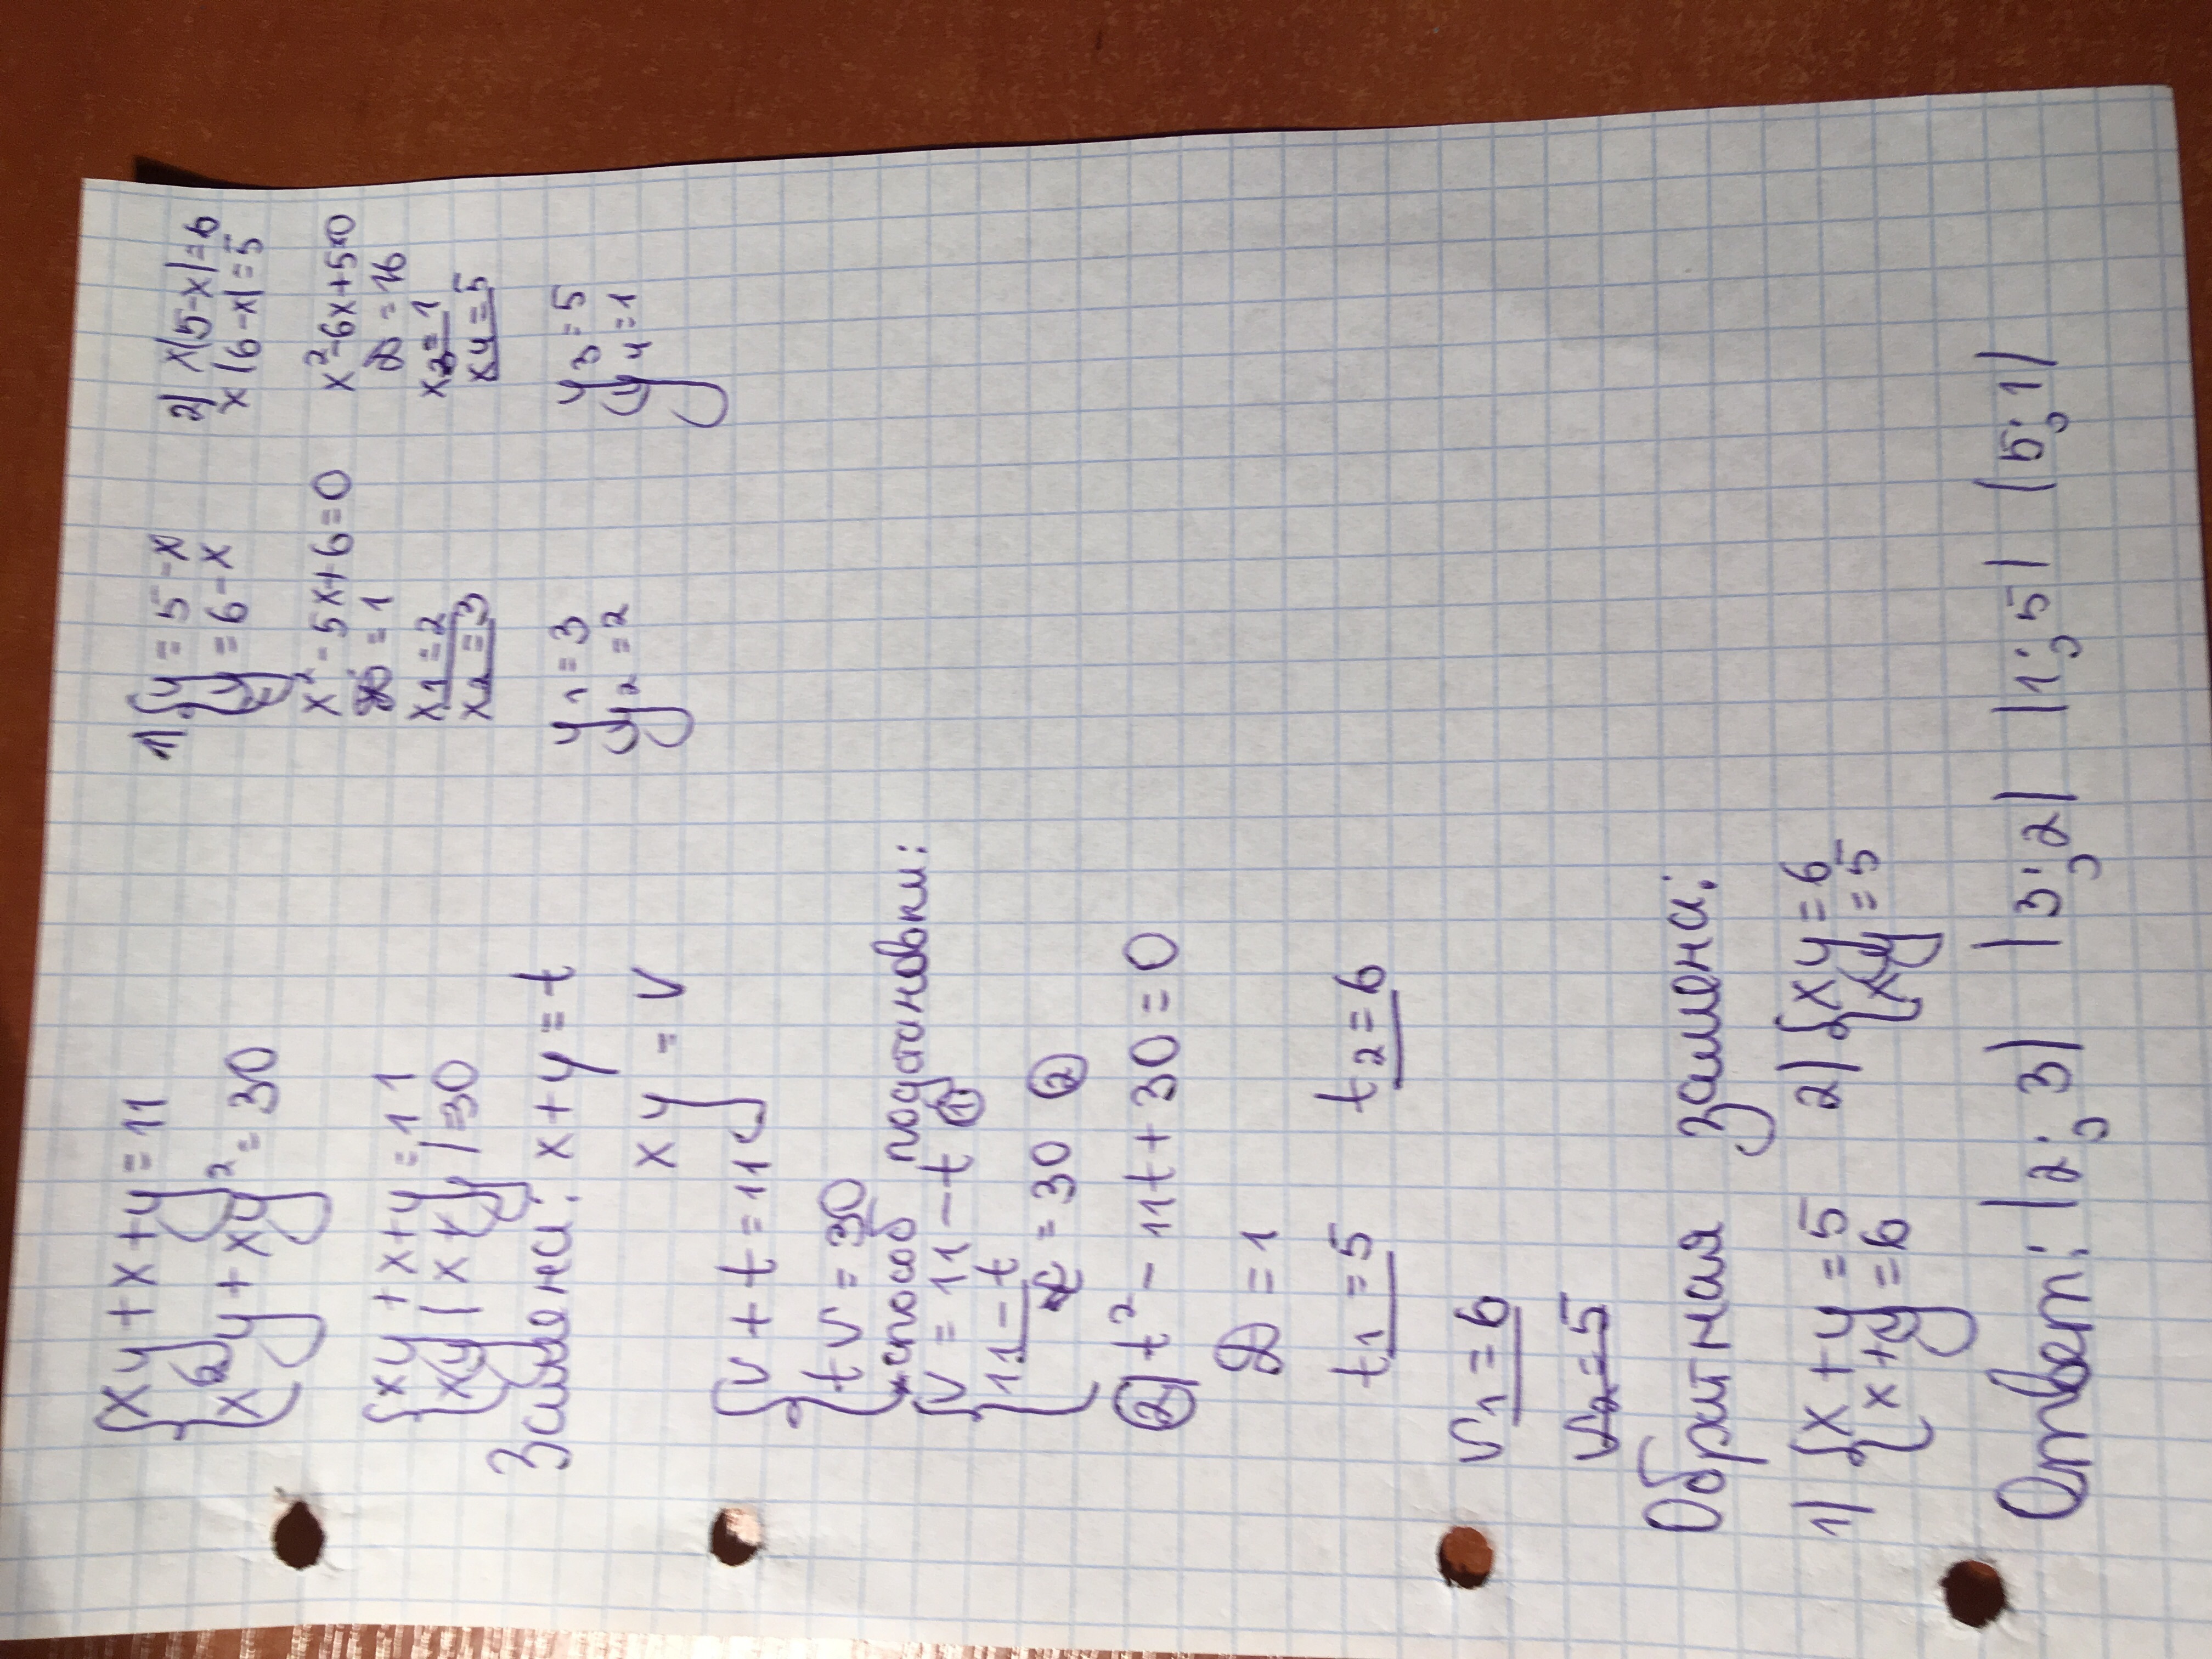 xy + x + y = 11
x²y + xy² = 30
xy + x + y = 11
xy(x+y) = 30
Замена: x + y = t
xy = v
v + t = 11
tv = 30
способ подстановки:
v = 11 - t ①
11 - t = 30 ②
② t² - 11t + 30 = 0
D = 1
t1 = 5 t2 = 6
v1 = 6
v2 = 5
Обратная замена:
1) x + y = 5 2) xy = 6
x + y = 6 xy = 5
Ответ: (2; 3) (3; 2) (1; 5) (5; 1)
1) y = 5 - x
y = 6 - x
x² - 5x + 6 = 0
D = 1
x1 = 2
x2 = 3
y1 = 3
y2 = 2
2) x(5-x) = 6
x(6-x) = 5
x² - 6x + 5 = 0
D = 16
x3 = 1
x4 = 5
y3 = 5
y4 = 1